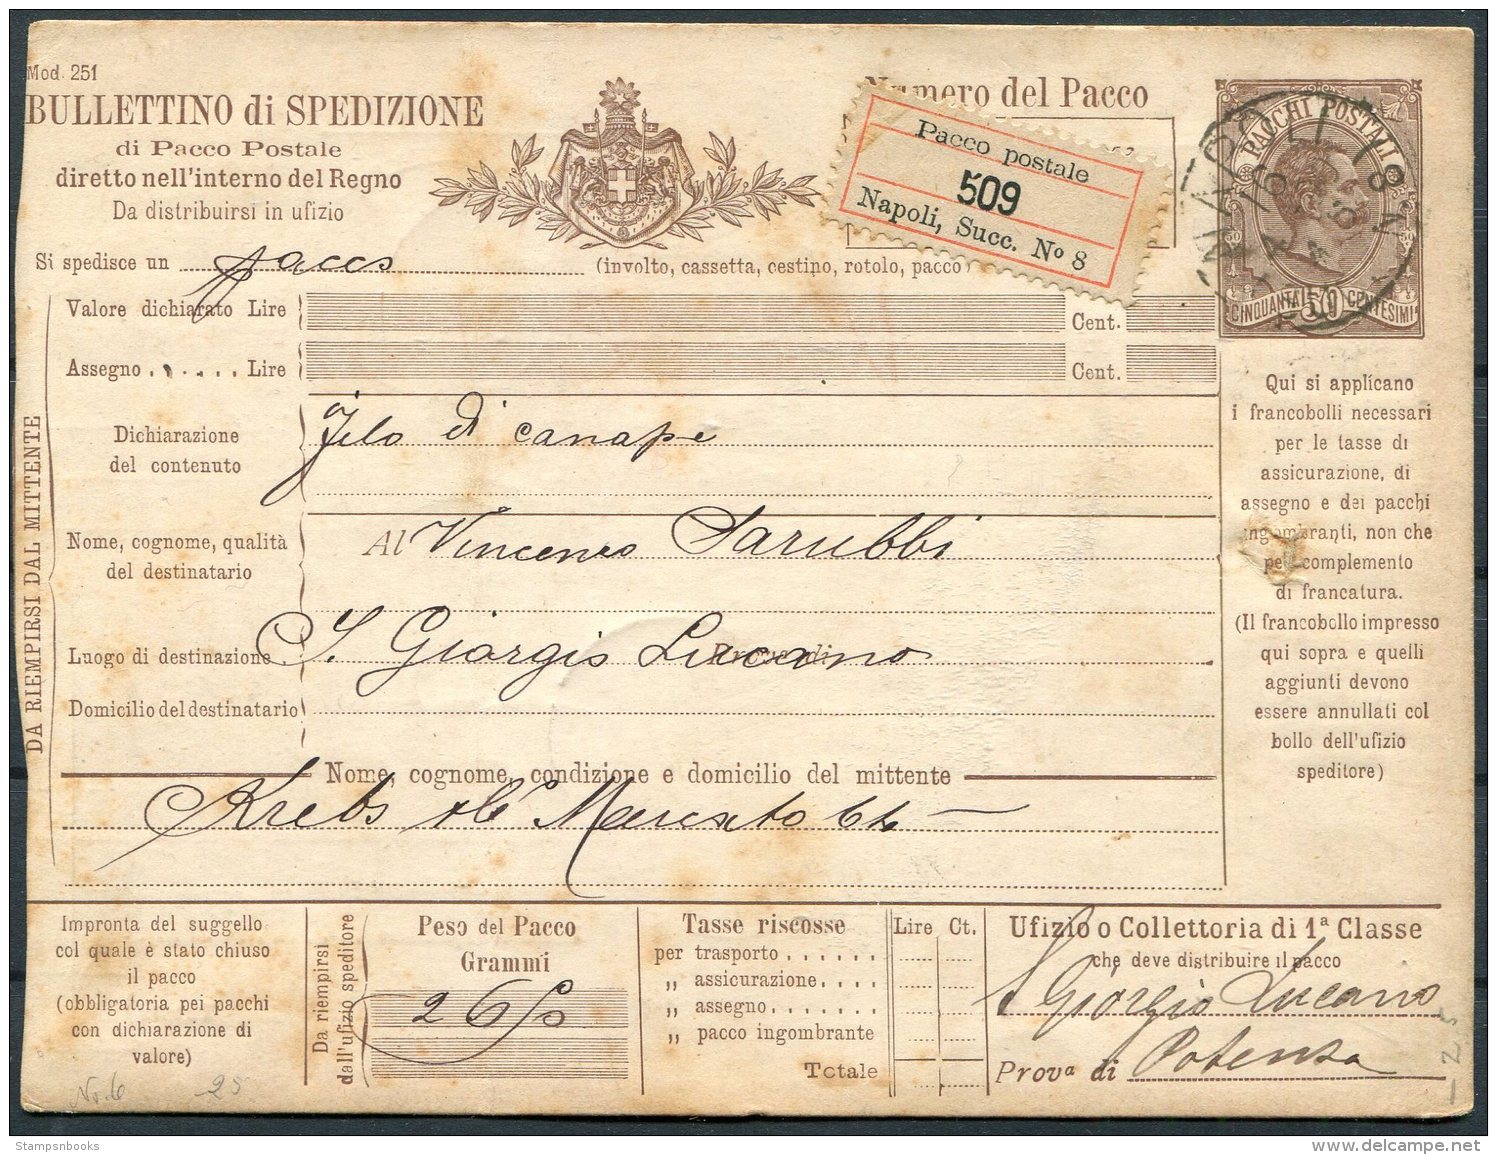 Mod. 251
BULLETTINO di SPEDIZIONE
di Pacco Postale
diretto nell'interno del Regno
Da distribuirsi in ufizio
Numero del Pacco
Pacco postale
509
Napoli, Succ. No 8
PACCHI POSTALI
CINQUANTA 50 CENTESIMI
NAPOLI
Si spedisce un pacco (involto, cassetta, cestino, rotolo, pacco)
DA RIEMPIRSI DAL MITTENTE
Valore dichiarato Lire Cent.
Assegno . . . . . . Lire Cent.
Dichiarazione
del contenuto
Filo di canape
Nome, cognome, qualità
del destinatario
Al Vincenzo Sarubbi
Luogo di destinazione
S. Giorgio Lucano
Domicilio del destinatario
Nome, cognome, condizione e domicilio del mittente
Krebs Mercato
Qui si applicano
i francobolli necessari
per le tasse di
assicurazione, di
assegno e dei pacchi
ingombranti, non che
per complemento
di francatura.
(Il francobollo impresso
qui sopra e quelli
aggiunti devono
essere annullati col
bollo dell'ufizio
speditore)
Impronta del suggello
col quale è stato chiuso
il pacco
(obbligatoria pei pacchi
con dichiarazione di
valore)
Da riempirsi
dall'ufizio speditore
Peso del Pacco
Grammi
Tasse riscosse
per trasporto . . . . . .
„ assicurazione . . . .
„ assegno . . . . . . .
„ pacco ingombrante
Totale
Lire Ct.
Ufizio o Collettoria di 1ª Classe
che deve distribuire il pacco
S. Giorgio Lucano
Provª di Potenza
No. 6 25
Stampsnbooks
www.delcampe.net